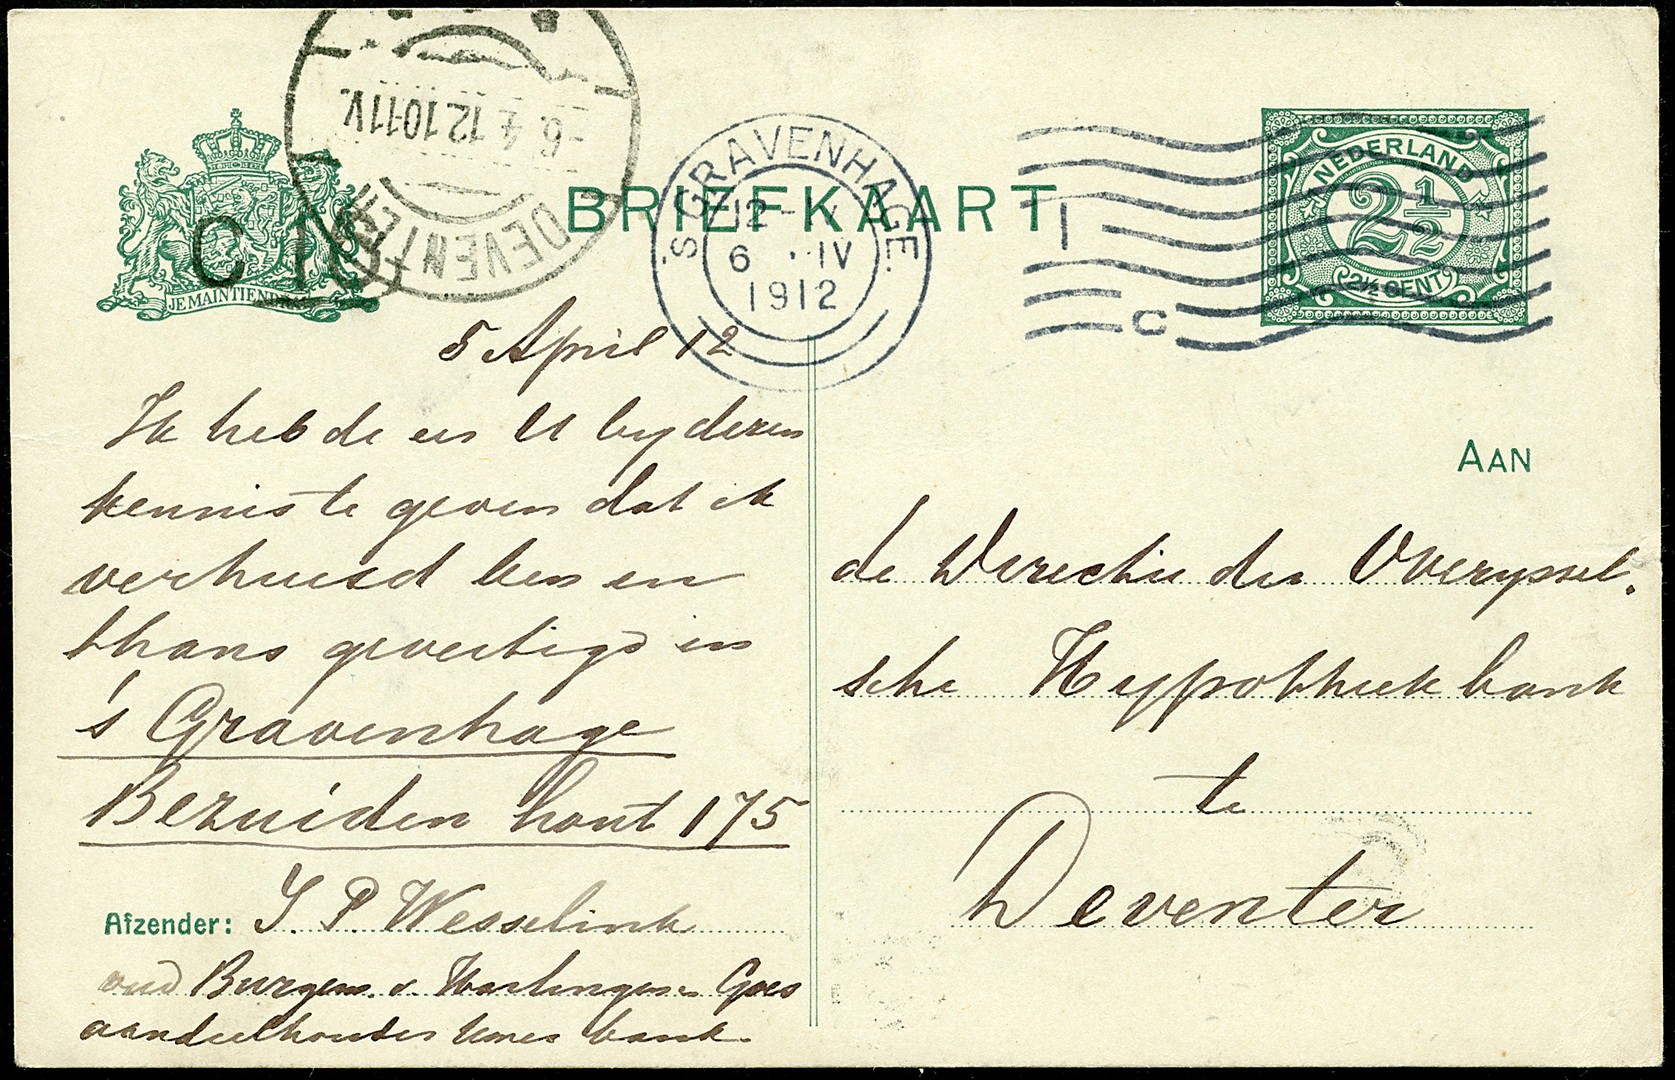 -6. 4. 12. 10-11V.
DEVENTER
C 10
JE MAINTIENDRAI
BRIEFKAART
'S GRAVENHAGE.
12 - V
6 . IV
1912
1
C
NEDERLAND
2 1/2
2½ CENT
5 April 12
Ik heb de eer U by deren
kennis te geven dat ik
verhuisd ben en
thans gevestigd in
's Gravenhage
Bezuidenhout 175
Afzender: J. P. Wesselink
oud Burgem. v. Harlingen en Goes
aandeelhouder Uwer bank.
AAN
de Directie der Overyssel.
sche Hypotheekbank
te
Deventer